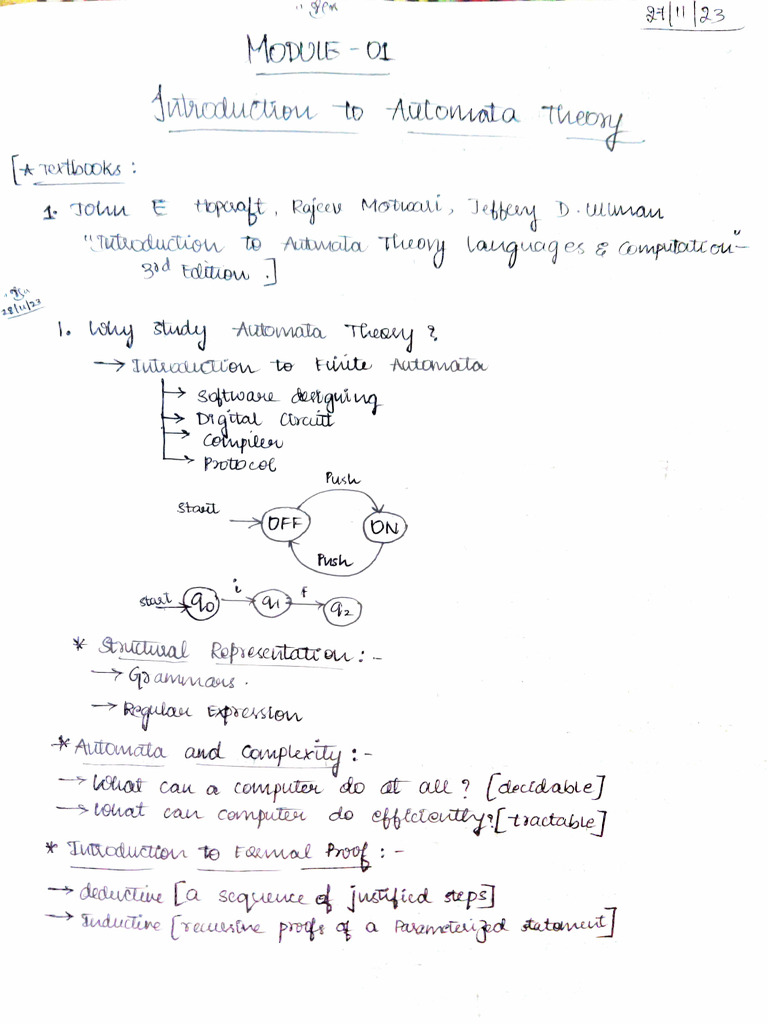 27/11/23
MODULE - 01
Introduction to Automata Theory
[* Textbooks :
1. John E Hopcraft, Rajeev Motwani, Jeffery D. Ullman
"Introduction to Automata Theory languages & Computation" -
3rd Edition .]
28/11/23
1. Why study Automata Theory?
→ Introduction to Finite Automata
→ Software designing
→ Digital Circuit
→ Compiler
→ Protocol
Push
Start → OFF ON
Push
start → q0 i → q1 f → q2
* Structural Representation : -
→ Grammars .
→ Regular Expression
* Automata and Complexity : -
→ What can a computer do at all ? [decidable]
→ What can computer do efficiently? [tractable]
* Introduction to Formal Proof : -
→ deductive [a sequence of justified steps]
→ Inductive [recursive proofs of a Parameterized statement]